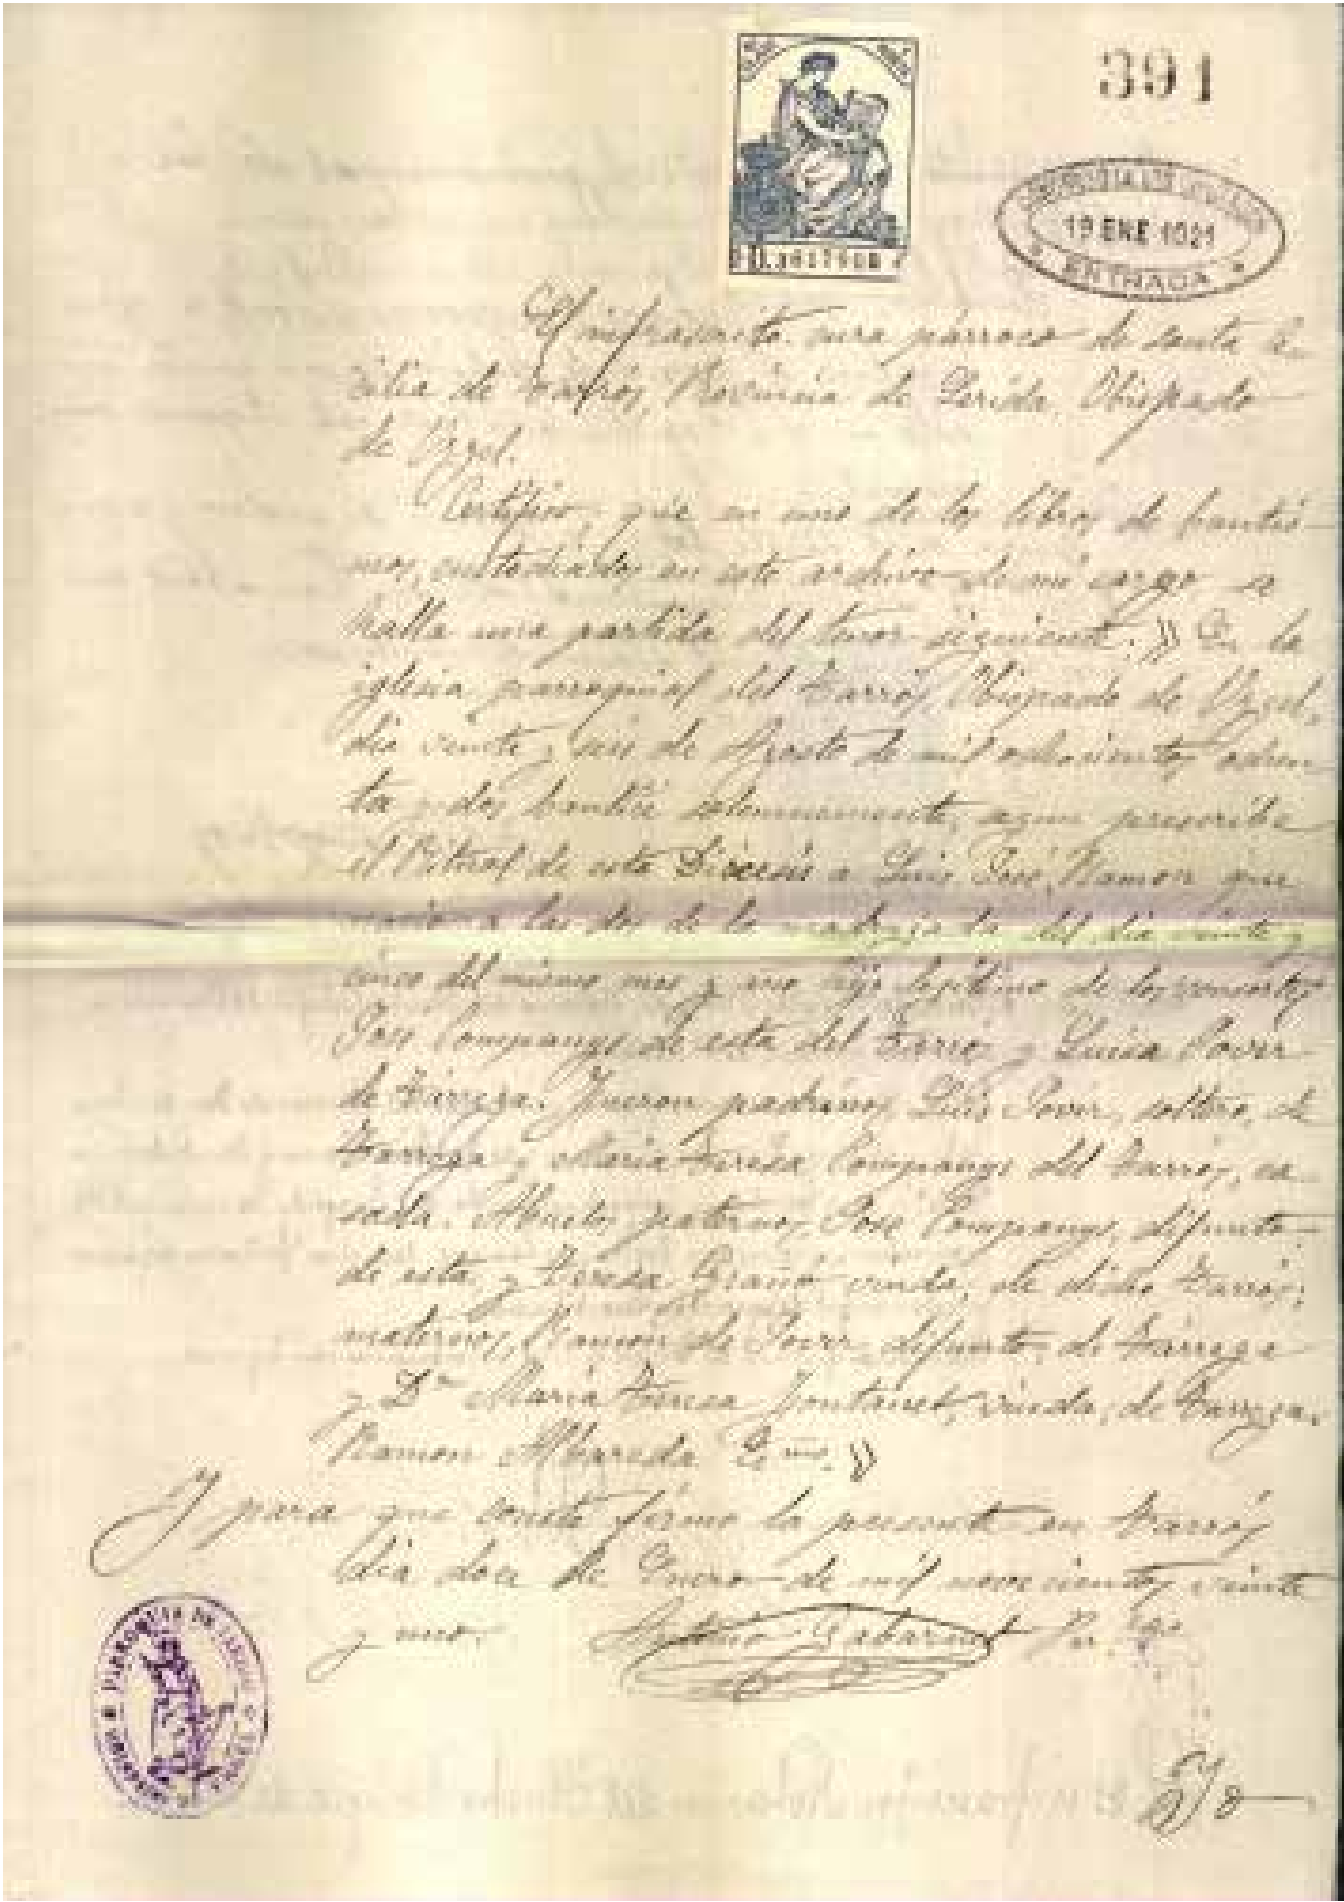 391
19 ENE 1921
ENTRADA
El infrascrito cura párroco de santa Ce-
cilia de Tarrós, Provincia de Lérida, Obispado
de Urgel.
Certifico, que en uno de los libros de bautis-
mos, custodiados en este archivo de mi cargo se
halla una partida del tenor siguiente: » En la
iglesia parroquial del Tarrós, Obispado de Urgel,
día veinte y seis de Agosto de mil ochocientos ochen
ta y dos bauticé solemnemente, segun prescribe
el Ritual de esta Diócesis a Luis, José, Ramon que
nació a las dos de la madrugada del día veinte y
cinco del mismo mes y año hijo legítimo de los consortes
José Companys de esta del Tarrós y Luisa Jover
de Tárrega. Fueron padrinos Luis Jover, soltero, de
Tárrega y María Teresa Companys del Tarrós, ca-
sada. Abuelos paternos, José Companys, difunto
de esta, y Teresa viuda, de dicho Tarrós;
maternos, Ramón de Jover difunto, de Tárrega
y Dª María Teresa Fontanet, viuda, de Tárrega.
Ramon Albareda »
Y para que conste firmo la presente en Tarrós
día doce de Enero de mil novecientos veinte
y uno. Antonio
PARROQUIA DE